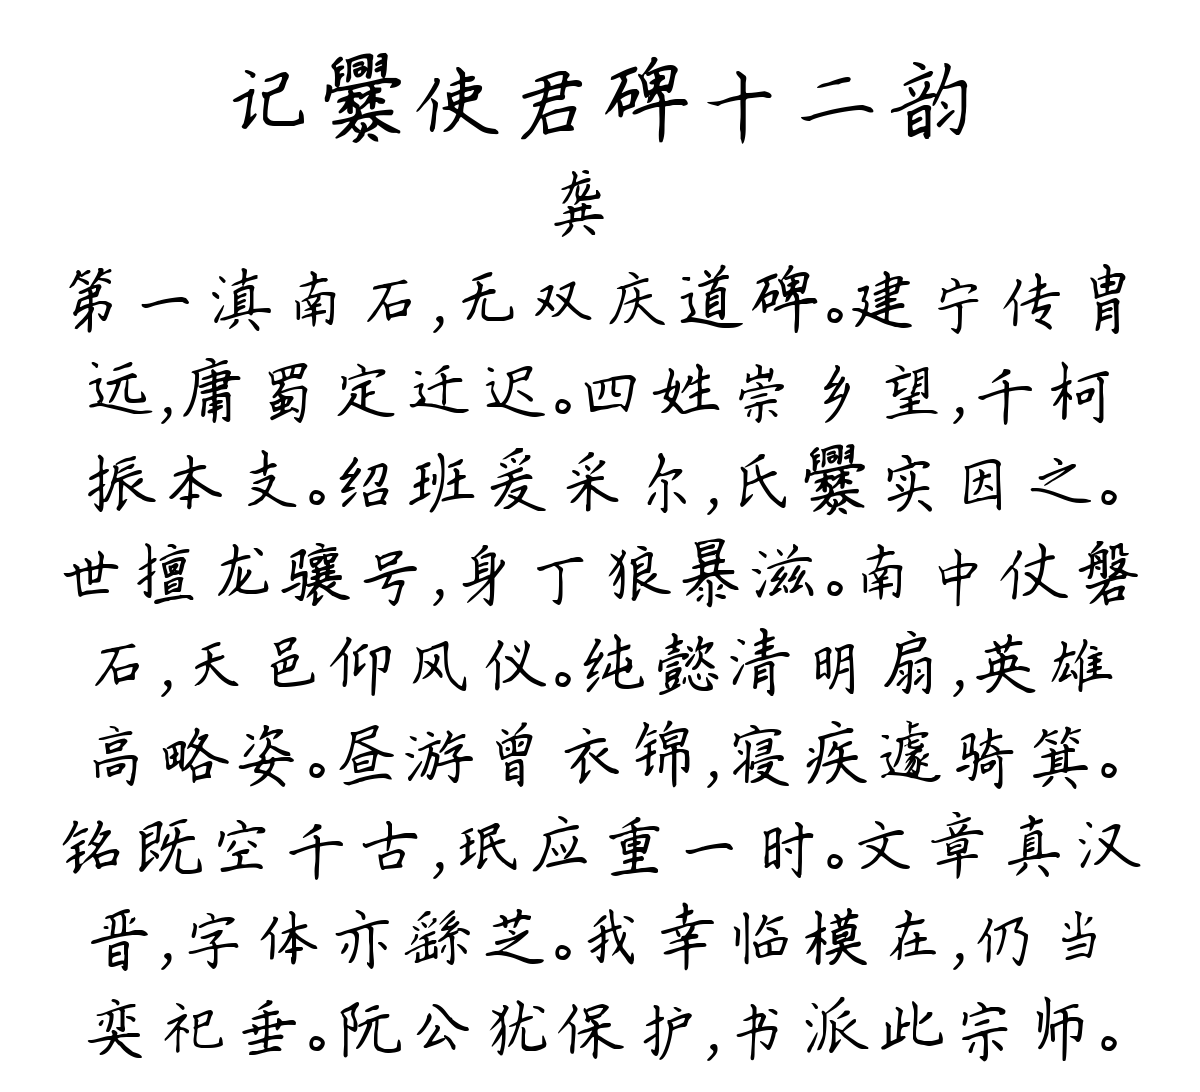 记爨使君碑十二韵
龚
第一滇南石,无双庆道碑。建宁传胄
远,庸蜀定迁迟。四姓崇乡望,千柯
振本支。绍班爰采尔,氏爨实因之。
世擅龙骧号,身丁狼暴滋。南中仗磐
石,天邑仰风仪。纯懿清明扇,英雄
高略姿。昼游曾衣锦,寝疾遽骑箕。
铭既空千古,珉应重一时。文章真汉
晋,字体亦繇芝。我幸临模在,仍当
奕祀垂。阮公犹保护,书派此宗师。